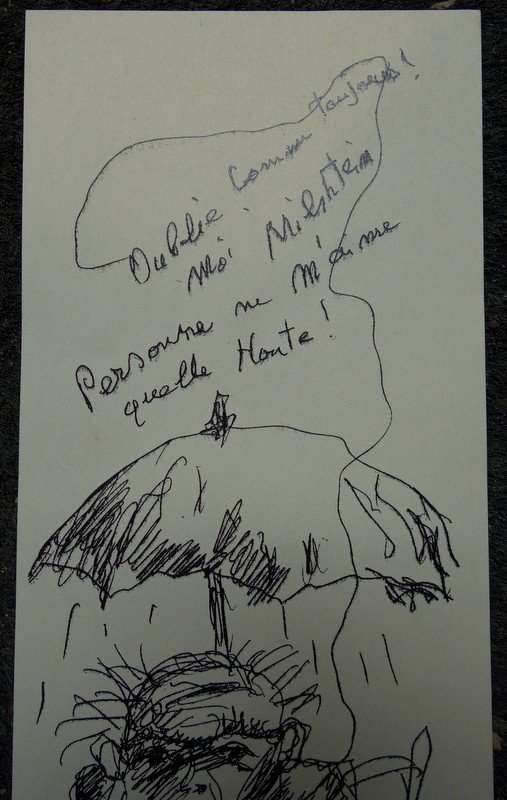 Oublié comme toujours!
Moi Milshtein
Personne ne m'aime
quelle Honte!